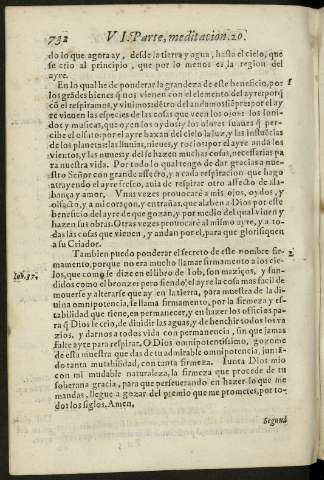 732 VI. Parte, meditacion. 20.
do lo que agora ay, desde la tierra y agua, hasta el cielo, que
se crio al principio, que por lo menos es la region del
ayre.
En lo qual he de ponderar la grandeza de este beneficio, por
los grãdes bienes q̃ nos vienen con el elemento del ayre: porq̃
cō el respiramos, y viuimos: dẽtro del andamos siẽpre: por el ay
re vienen las especies de las cosas que veen los ojos: los soni-
dos y musicas, que oyen los oydos: y los olores suaues q̃ per-
cibe el olfato: por el ayre baxan del cielo la luz, y las influẽcias
de los planetas: las lluuias, nieues, y rocios: por el ayre andã los
vientos, y las nuues: y del se hazen muchas cosas, necessarias pa
ra nuestra vida. Por todo lo qual tengo de dar gracias a nue-
stro Señor con grande affecto, y a cada respiracion que hago
atrayendo el ayre fresco, auia de respirar otro affecto de ala-
bança y amor. Vnas vezes prouocarè a mis ojos, oydos, y
olfacto, y a mi coraçon, y entrañas, que alaben a Dios por este
beneficio del ayre de que gozan, y por medio del qual viuen y
hazen sus obras. Otras vezes prouocarè al mismo ayre, y a to-
das las cosas que vienen, y andan por el, para que glorifiquen
a su Criador.
Tambien puedo ponderar el secreto de este nombre fir-
mamento, porque no era mucho llamar firmamento a los cie-
los, que como se dize en el libro de Iob, son maziços, y fun-
didos como el bronze: pero siendo el ayre la cosa mas facil de
mouerse y alterarse que ay en la tierra, para muestra de la di
uina omnipotencia, se llama firmamento, por la firmeza y es-
tabilidad que tiene, en permanecer, y en hazer los officios pa-
ra q̃ Dios le crio, de diuidir las aguas, y de henchir todos los va
zios, y darnos a todos vida con permanencia, sin que jamas
falte ayre para respirar. O Dios omnipotentissimo, gozome
de esta muestra que das de tu admirable omnipotencia, juntã-
do tanta mutabilidad, con tanta firmeza. Iunta Dios mio
con mi mudable naturaleza, la firmeza que procede de tu
soberana gracia, para que perseuerando en hazer lo que me
mandas, llegue a gozar del premio que me prometes, por to-
dos los siglos. Amen.
Segund
1
2
Iob. 37.